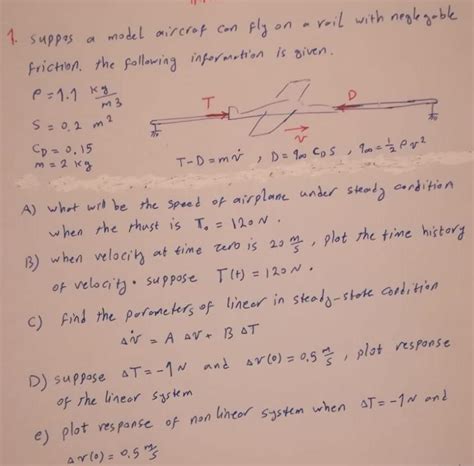 1. suppos a model aircraf can fly on a rail with neglegable
friction. the following information is given.
ρ = 1.1 kg/m3
S = 0.2 m²
CD = 0.15
m = 2 kg
T
D
v
T-D = mv̇ , D = q∞ CD S , q∞ = ½ ρ v²
A) what will be the speed of airplane under steady condition
when the thust is T₀ = 120 N .
B) when velocity at time zero is 20 m/s , plot the time history
of velocity. suppose T(t) = 120 N .
C) find the parameters of linear in steady-state condition
Δv̇ = A Δv + B ΔT
D) suppose ΔT = -1 N and Δv(0) = 0.5 m/s , plot response
of the linear system
e) plot response of nonlinear system when ΔT = -1 N and
Δv(0) = 0.5 m/s